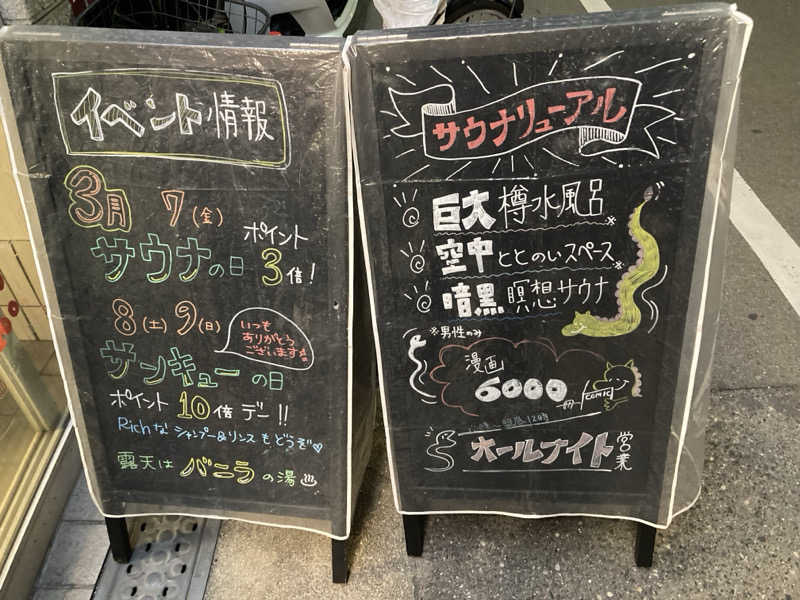 イベント情報
3月 7(金)
サウナの日 ポイント3倍!
8(土) 9(日)
いつも
ありがとう
ございます
サンキューの日
ポイント10倍デー!!
Richなシャンプー&リンスもどうぞ♡
露天はバニラの湯♨
サウナリニューアル
巨大樽水風呂※
空中ととのいスペース※
暗黒瞑想サウナ
※男性のみ
漫画
6000冊
COMIC
オールナイト営業